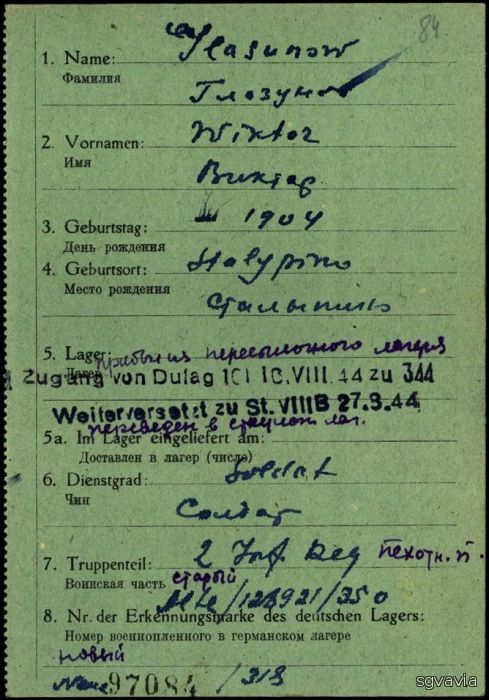 84
1. Name: Glasunow
Фамилия
Глазунов
2. Vornamen: Wiktor
Имя
Виктор
3. Geburtstag: III 1904
День рождения
4. Geburtsort: Stalypino
Место рождения
Сталыпино
5. Lager: прибыл из пересыльного лагеря
Лагер
Zugang von Dulag 101 18.VIII.44 zu 344
Weiterversetzt zu St. VIIIB 27.3.44
переведен в стацион лаг.
5a. Im Lager eingeliefert am:
Доставлен в лагер (число)
6. Dienstgrad: Soldat
Чин
Солдат
7. Truppenteil: 2 Inf. Reg пехотн. п.
Воинская часть старый
/126921/350
8. Nr. der Erkennungsmarke des deutschen Lagers:
Номер военнопленного в германском лагере
новый
Neue 97084 /318
sgvavia